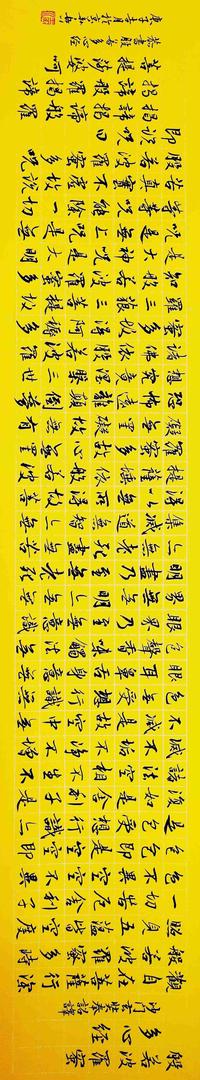 般若波羅蜜
多心經
沙門玄奘奉詔譯
觀自在菩薩行深
般若波羅蜜多時
照見五蘊皆空度
一切苦厄舍利子
色不異空空不異
色色即是空空即
是色受想行識亦
復如是舍利子是
諸法空相不生不
滅不垢不淨不增
不減是故空中無
色無受想行識無
眼耳鼻舌身意無
色聲香味觸法無
眼界乃至無意識
界無無明亦無無
明盡乃至無老死
亦無老死盡無苦
集滅道無智亦無
得以無所得故菩
提薩埵依般若波
羅蜜多故心無罣
礙無罣礙故無有
恐怖遠離顛倒夢
想究竟涅槃三世
諸佛依般若波羅
蜜多故得阿耨多
羅三藐三菩提故
知般若波羅蜜多
是大神咒是大明
咒是無上咒是無
等等咒能除一切
苦真實不虛故說
般若波羅蜜多咒
即說咒曰
揭諦揭諦般羅
揭諦般羅僧揭諦
菩提娑婆訶
恭書般若多心經
庚子年月於京華